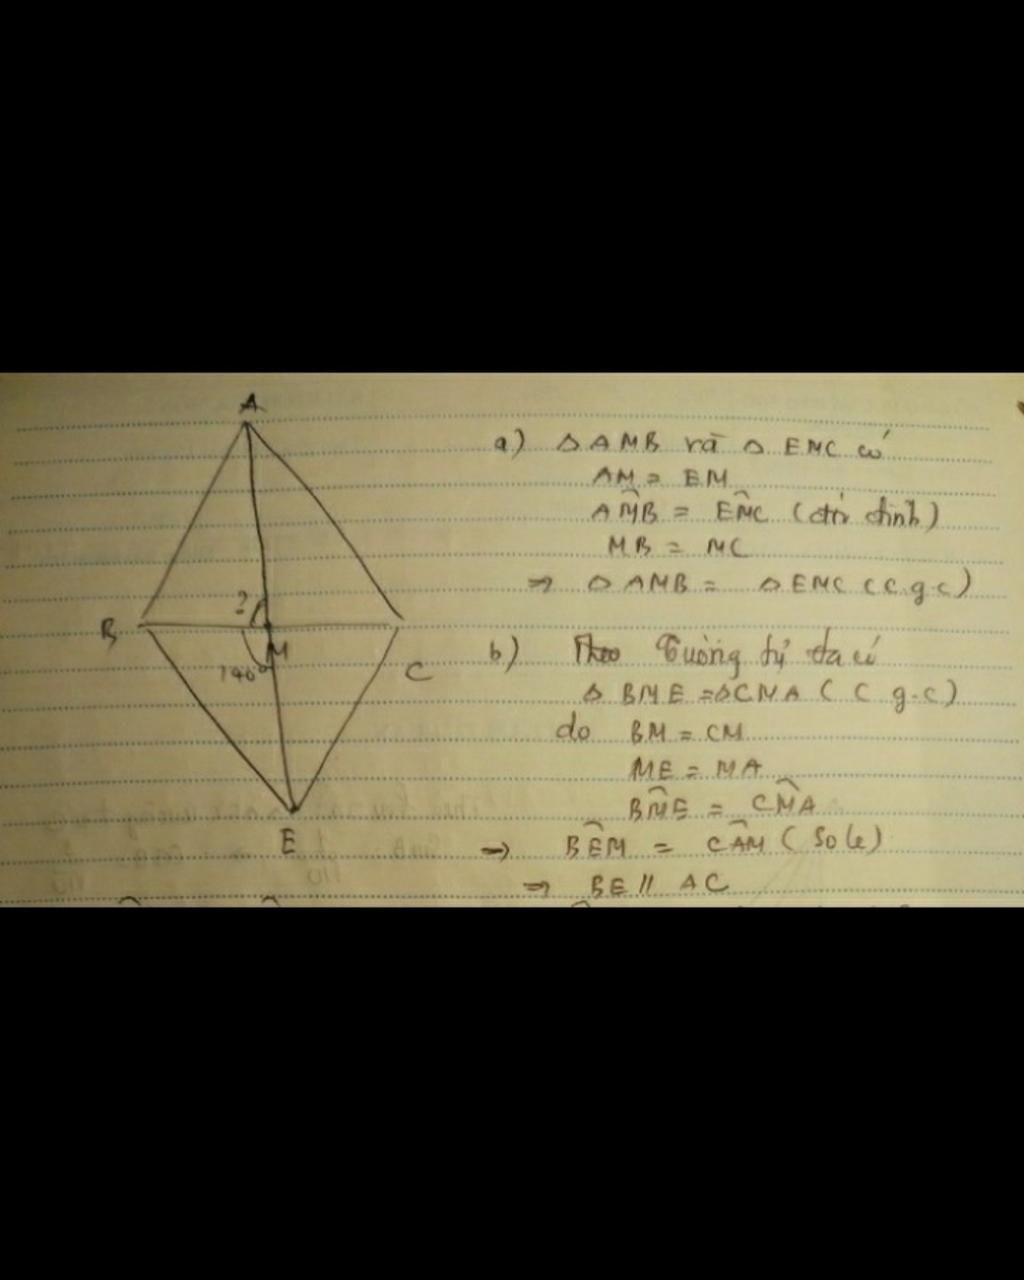 A
B
?
M
140°
C
E
a) Δ AMB và Δ EMC có
AM = EM
AM̂B = EM̂C (đối đỉnh)
MB = MC
⇒ Δ AMB = Δ EMC (c.g.c)
b) Theo tương tự ta có
Δ BME = Δ CMA (C g-c)
do BM = CM
ME = MA
BM̂E = CM̂A
⇒ BÊM = CÂM (So le)
⇒ BE // AC